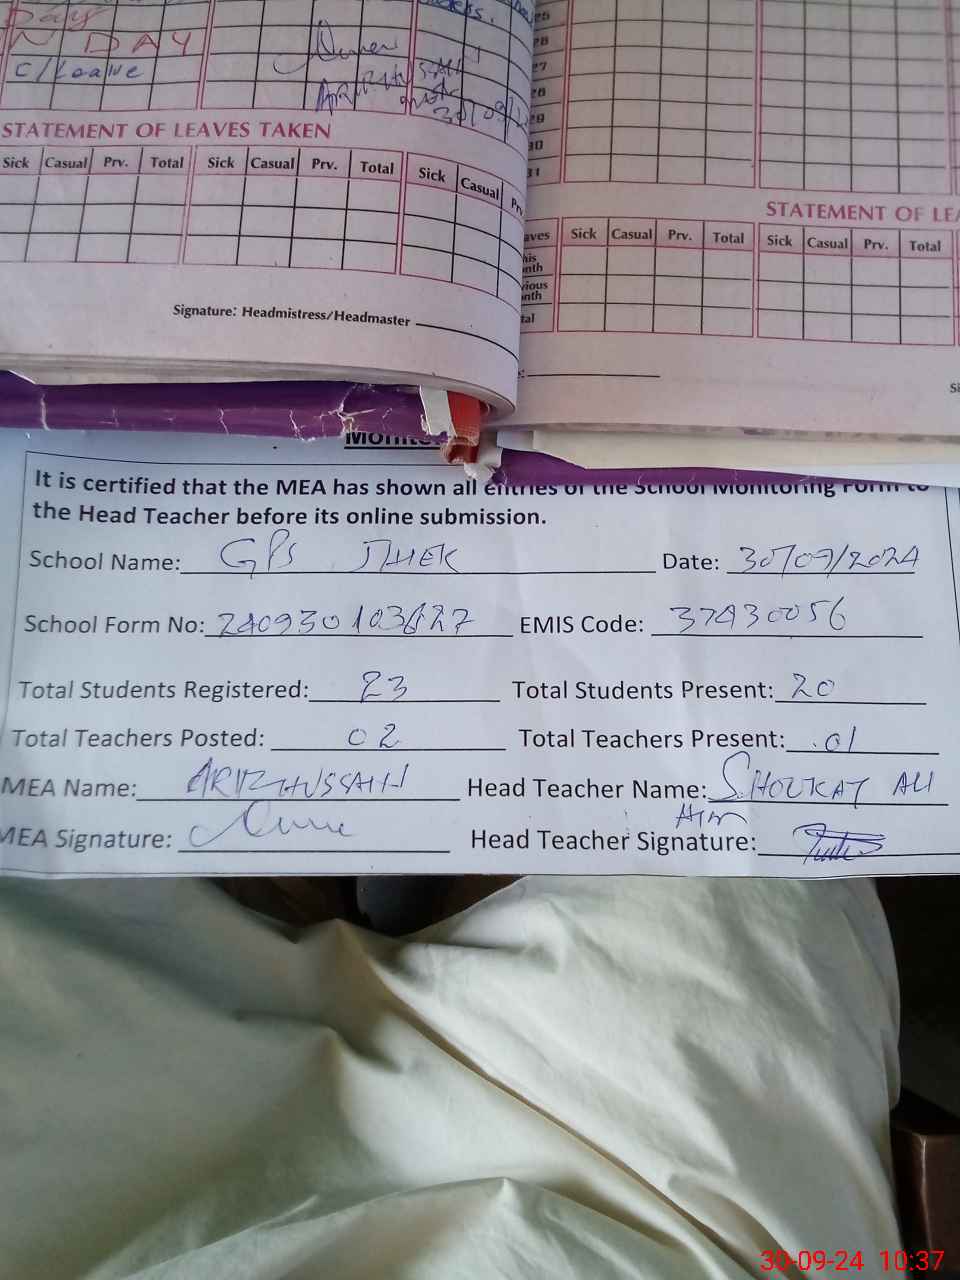 Days
N DAY
C/Leave
STATEMENT OF LEAVES TAKEN
Sick Casual Prv. Total Sick Casual Prv. Total Sick Casual
Signature: Headmistress/Headmaster
30
STATEMENT OF
Sick Casual Prv. Total Sick Casual Prv. Total
It is certified that the MEA has shown all entries of the School Monitoring Form to
the Head Teacher before its online submission.
School Name: GPS JHEK Date: 30/09/2024
School Form No: EMIS Code: 37430056
Total Students Registered: 23 Total Students Present: 20
Total Teachers Posted: 02 Total Teachers Present: 01
MEA Name: Head Teacher Name: SHOUKAT ALI
MEA Signature: Head Teacher Signature:
30-09-24 10:37